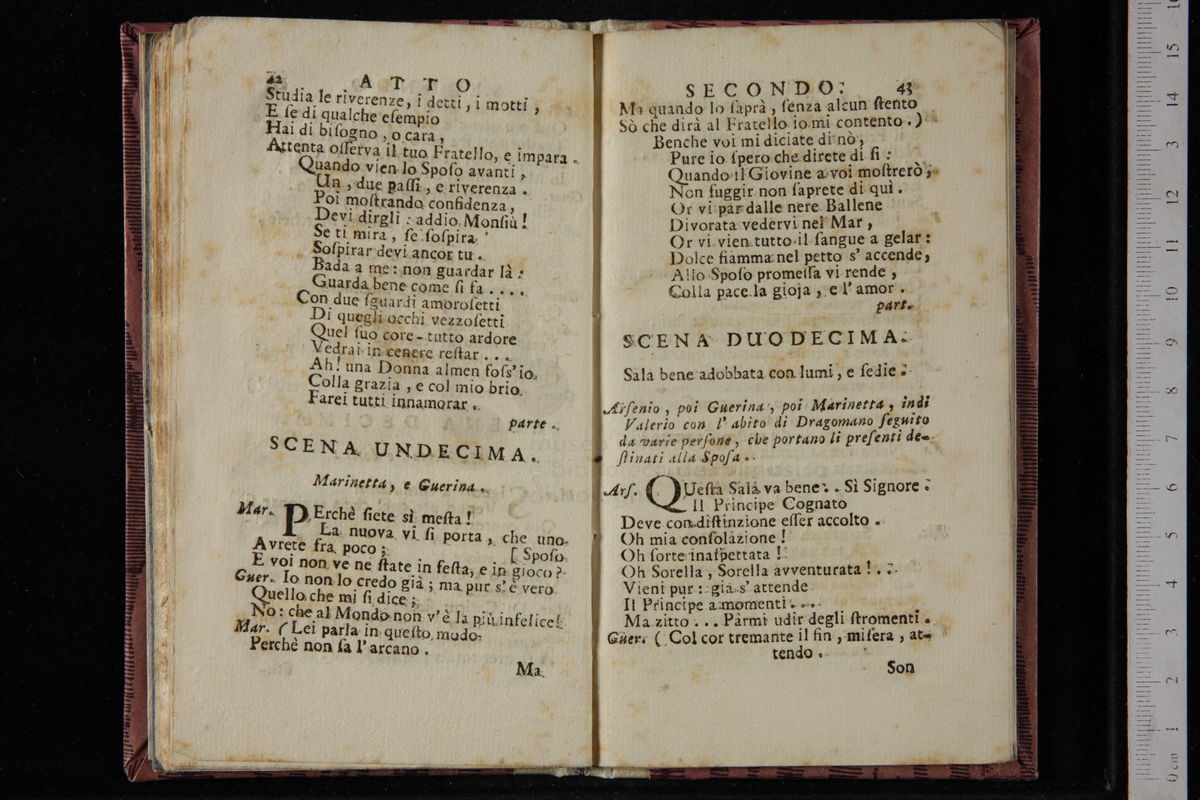 42 ATTO
Studia le riverenze, i detti, i motti,
E ſe di qualche eſempio
Hai di biſogno, o cara,
Attenta oſſerva il tuo Fratello, e impara.
Quando vien lo Spoſo avanti,
Un, due paſſi, e riverenza.
Poi moſtrando confidenza,
Devi dirgli: addio Monſiù!
Se ti mira, ſe ſoſpira
Soſpirar devi ancor tu.
Bada a me: non guardar là:
Guarda bene come ſi fa....
Con due ſguardi amoroſetti
Di quegli occhi vezzoſetti
Quel ſuo core tutto ardore
Vedrai in cenere reſtar...
Ah! una Donna almen foſs'io,
Colla grazia, e col mio brio
Farei tutti innamorar.
parte.
SCENA UNDECIMA.
Marinetta, e Guerina.
Mar. PErchè ſiete sì meſta!
La nuova vi ſi porta, che uno
Avrete fra poco; [Spoſo
E voi non ve ne ſtate in feſta, e in gioco?
Guer. Io non lo credo già; ma pur s'è vero
Quello che mi ſi dice;
No: che al Mondo non v'è la più infelice!
Mar. (Lei parla in queſto modo
Perchè non ſa l'arcano.
Ma
SECONDO. 43
Ma quando lo ſaprà, ſenza alcun ſtento
Sò che dirà al Fratello io mi contento.)
Benche voi mi diciate di nò,
Pure io ſpero che direte di ſi:
Quando il Giovine a voi moſtrerò,
Non fuggir non ſaprete di quì.
Or vi par dalle nere Ballene
Divorata vedervi nel Mar,
Or vi vien tutto il ſangue a gelar:
Dolce fiamma nel petto s'accende,
Allo Spoſo promeſſa vi rende,
Colla pace la gioja, e l'amor.
part.
SCENA DUODECIMA.
Sala bene adobbata con lumi, e ſedie.
Arſenio, poi Guerina, poi Marinetta, indi
Valerio con l'abito di Dragomano ſeguito
da varie perſone, che portano li preſenti de-
ſtinati alla Spoſa.
Arſ. QUeſta Sala va bene.. Sì Signore.
Il Principe Cognato
Deve con diſtinzione eſſer accolto.
Oh mia conſolazione!
Oh ſorte inaſpettata!
Oh Sorella, Sorella avventurata!..
Vieni pur: già s'attende
Il Principe a momenti....
Ma zitto... Parmi udir degli ſtromenti.
Guer. (Col cor tremante il fin, miſera, at-
tendo.
Son
0 cm 1 2 3 4 5 6 7 8 9 10 11 12 13 14 15